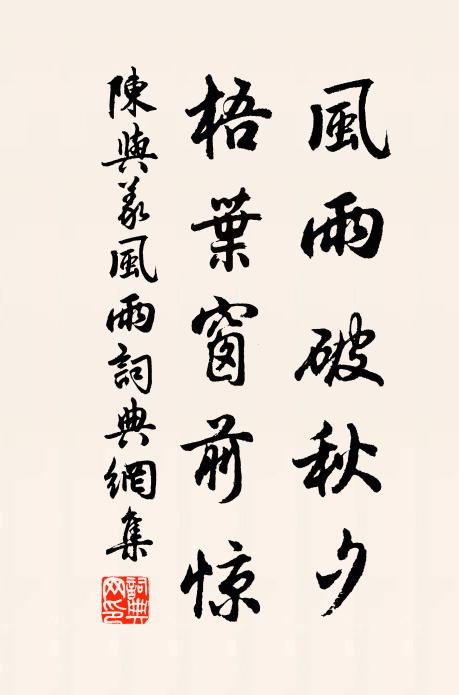 風雨破秋夕
梧葉窗前惊
陳與義風雨詞典網集
詞典網印